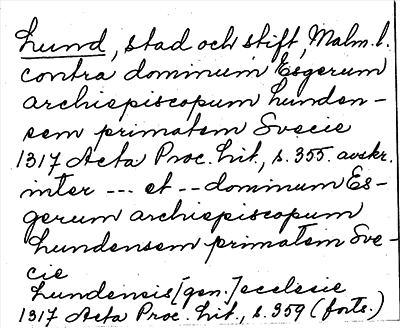 Lund, stad och stift, Malm. l.
contra dominum Esgerum
archiepiscopum lunden-
sem primatem Svecie
1317 Acta Proc. lit., s. 355. avskr.
inter --- et -- dominum Es-
gerum archiepiscopum
lundensem primatem Sve-
cie
lundensis [gen.] ecclesie
1317 Acta Proc. lit., s. 359 (forts.)